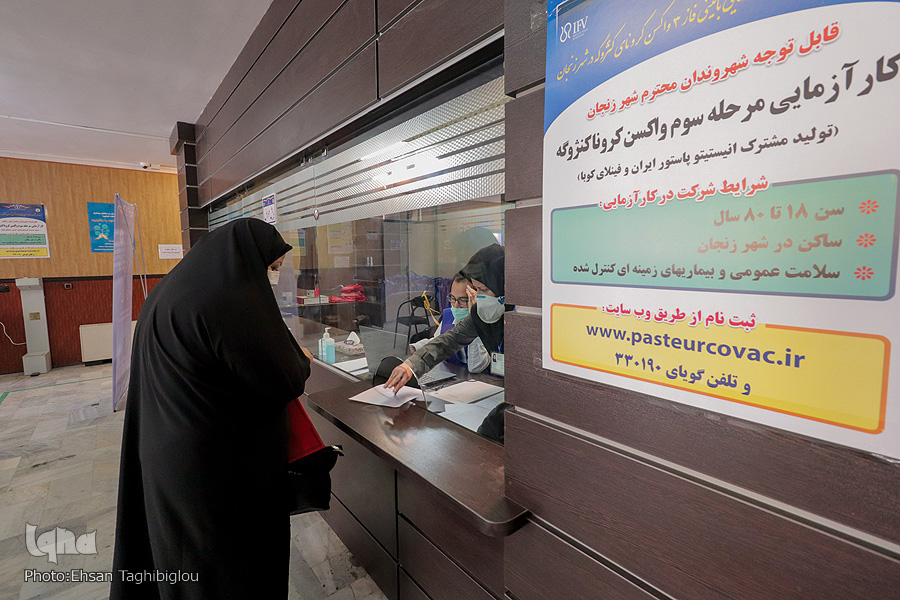 IFV
فاز ۳ واکسن کرونای کشور که در شهر زنجان
قابل توجه شهروندان محترم شهر زنجان
کارآزمایی مرحله سوم واکسن کرونا کنژوگه
(تولید مشترک انیستیتو پاستور ایران و فینلای کوبا)
شرایط شرکت در کارآزمایی:
سن ۱۸ تا ۸۰ سال
ساکن در شهر زنجان
سلامت عمومی و بیماریهای زمینه ای کنترل شده
ثبت نام از طریق وب سایت:
www.pasteurcovac.ir
و تلفن گویای ۳۳۰۱۹۰
iqna
Photo:Ehsan Taghibiglou